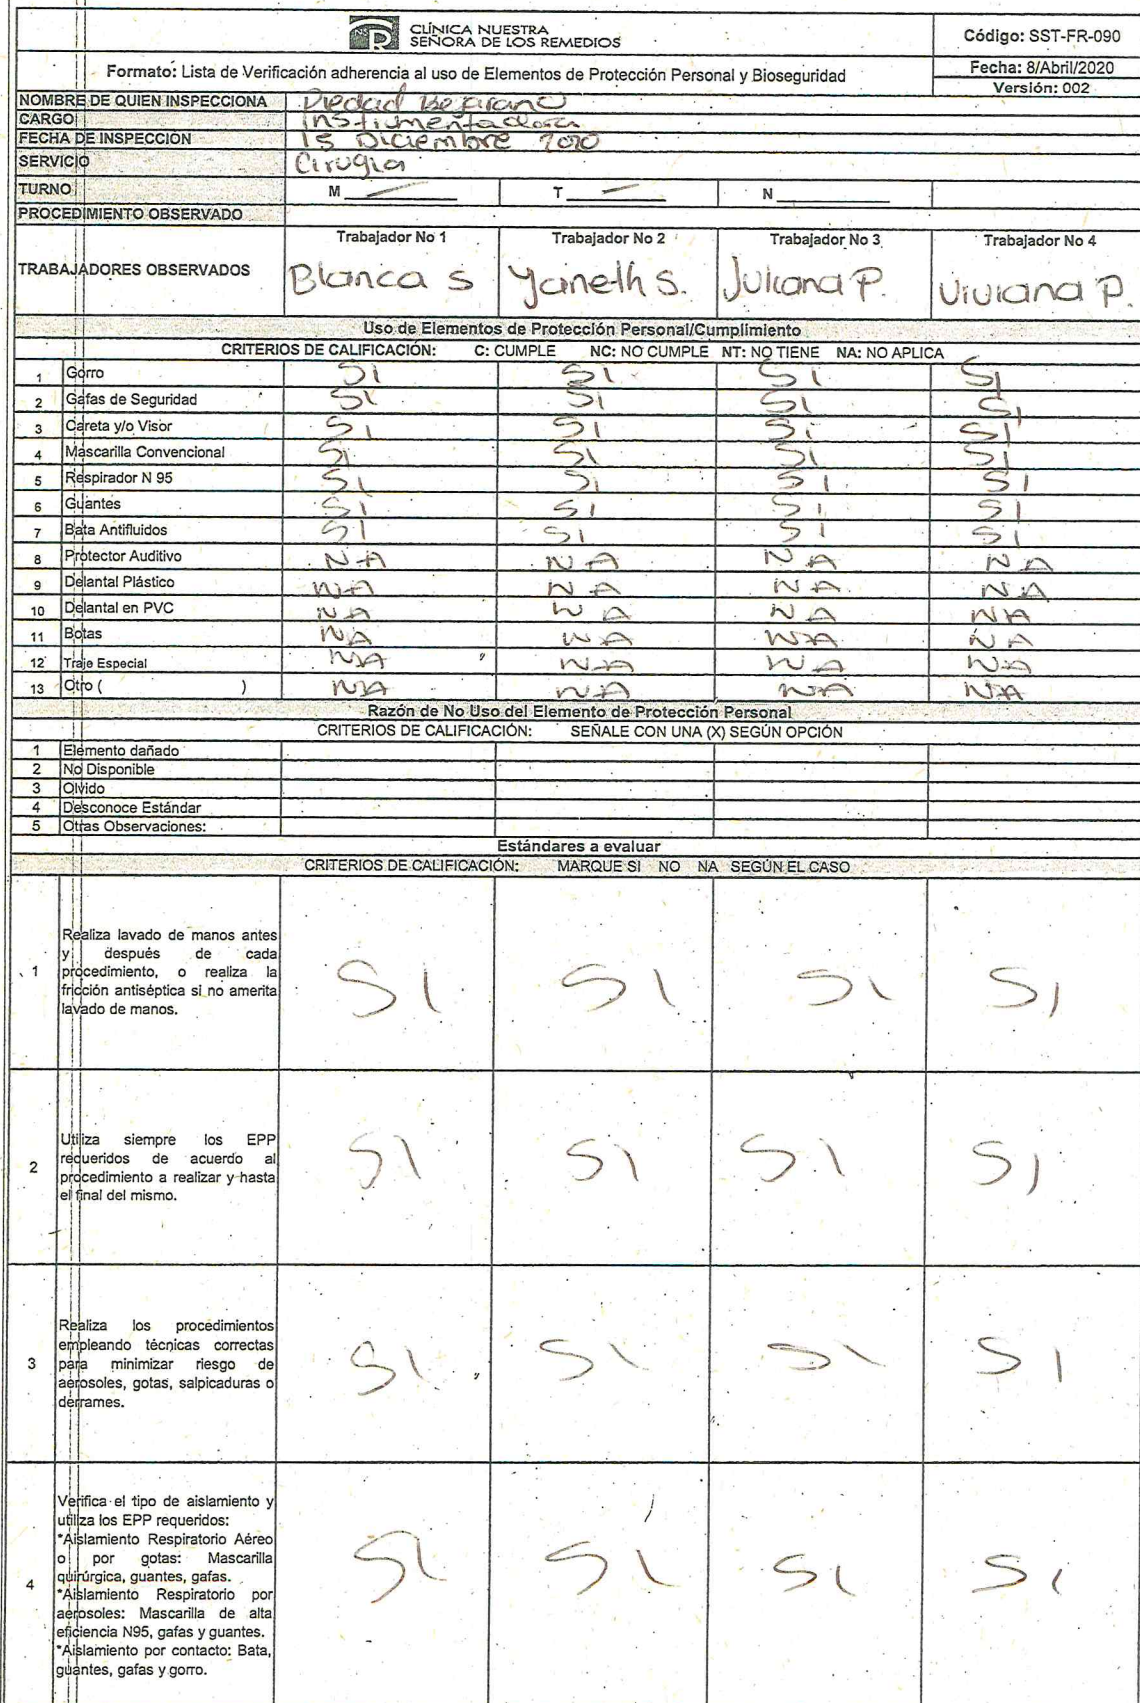 CLÍNICA NUESTRA
SEÑORA DE LOS REMEDIOS
Código: SST-FR-090
Formato: Lista de Verificación adherencia al uso de Elementos de Protección Personal y Bioseguridad
Fecha: 8/Abril/2020
Versión: 002
NOMBRE DE QUIEN INSPECCIONA Piedad Bejarano
CARGO instrumentadora
FECHA DE INSPECCIÓN 15 Diciembre 2020
SERVICIO Cirugia
TURNO M T N
PROCEDIMIENTO OBSERVADO
TRABAJADORES OBSERVADOS
Trabajador No 1 Trabajador No 2 Trabajador No 3 Trabajador No 4
Blanca S Yaneth S. Juliana P. Viviana P.
Uso de Elementos de Protección Personal/Cumplimiento
CRITERIOS DE CALIFICACIÓN: C: CUMPLE NC: NO CUMPLE NT: NO TIENE NA: NO APLICA
1 Gorro SI SI SI SI
2 Gafas de Seguridad SI SI SI SI
3 Careta y/o Visor SI SI SI SI
4 Mascarilla Convencional SI SI SI SI
5 Respirador N 95 SI SI SI SI
6 Guantes SI SI SI SI
7 Bata Antifluidos SI SI SI SI
8 Protector Auditivo NA NA NA NA
9 Delantal Plástico NA NA NA NA
10 Delantal en PVC NA NA NA NA
11 Botas NA NA NA NA
12 Traje Especial NA NA NA NA
13 Otro ( ) NA NA NA NA
Razón de No Uso del Elemento de Protección Personal
CRITERIOS DE CALIFICACIÓN: SEÑALE CON UNA (X) SEGÚN OPCIÓN
1 Elemento dañado
2 No Disponible
3 Olvido
4 Desconoce Estándar
5 Otras Observaciones:
Estándares a evaluar
CRITERIOS DE CALIFICACIÓN: MARQUE SI NO NA SEGÚN EL CASO
1
Realiza lavado de manos antes
y después de cada
procedimiento, o realiza la
fricción antiséptica si no amerita
lavado de manos.
SI SI SI SI
2
Utiliza siempre los EPP
requeridos de acuerdo al
procedimiento a realizar y hasta
el final del mismo.
SI SI SI SI
3
Realiza los procedimientos
empleando técnicas correctas
para minimizar riesgo de
aerosoles, gotas, salpicaduras o
derrames.
SI SI SI SI
4
Verifica el tipo de aislamiento y
utiliza los EPP requeridos:
*Aislamiento Respiratorio Aéreo
o por gotas: Mascarilla
quirúrgica, guantes, gafas.
*Aislamiento Respiratorio por
aerosoles: Mascarilla de alta
eficiencia N95, gafas y guantes.
*Aislamiento por contacto: Bata,
guantes, gafas y gorro.
SI SI SI SI